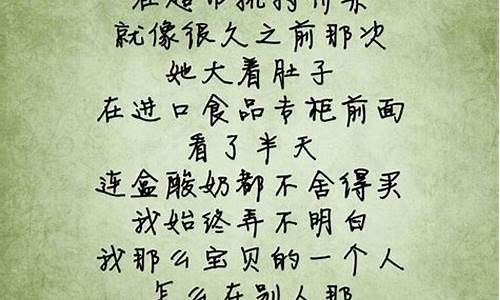 在超市挑挑拣拣
就像很久之前那次
她大着肚子
在进口食品专柜前面
看了半天
连盒酸奶都不舍得买
我始终弄不明白
我那么宝贝的一个人
怎么在别人那